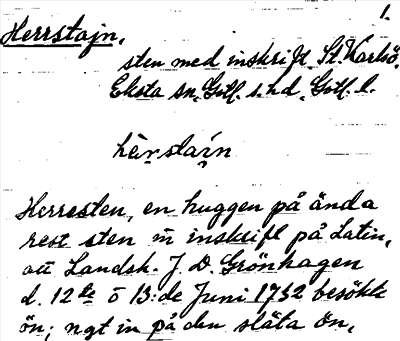 1.
Herrstajn,
sten med inskrift. St. Karlsö,
Eksta sn, Gotl. s. hd, Gotl. l.
hèrstaín
Herresten, en huggen på ända
rest sten m inskrift på Latin,
att Landsh. J. D. Grönhagen
d. 12te o 13:de Juni 1732 besökte
ön; ngt in på den släta ön,